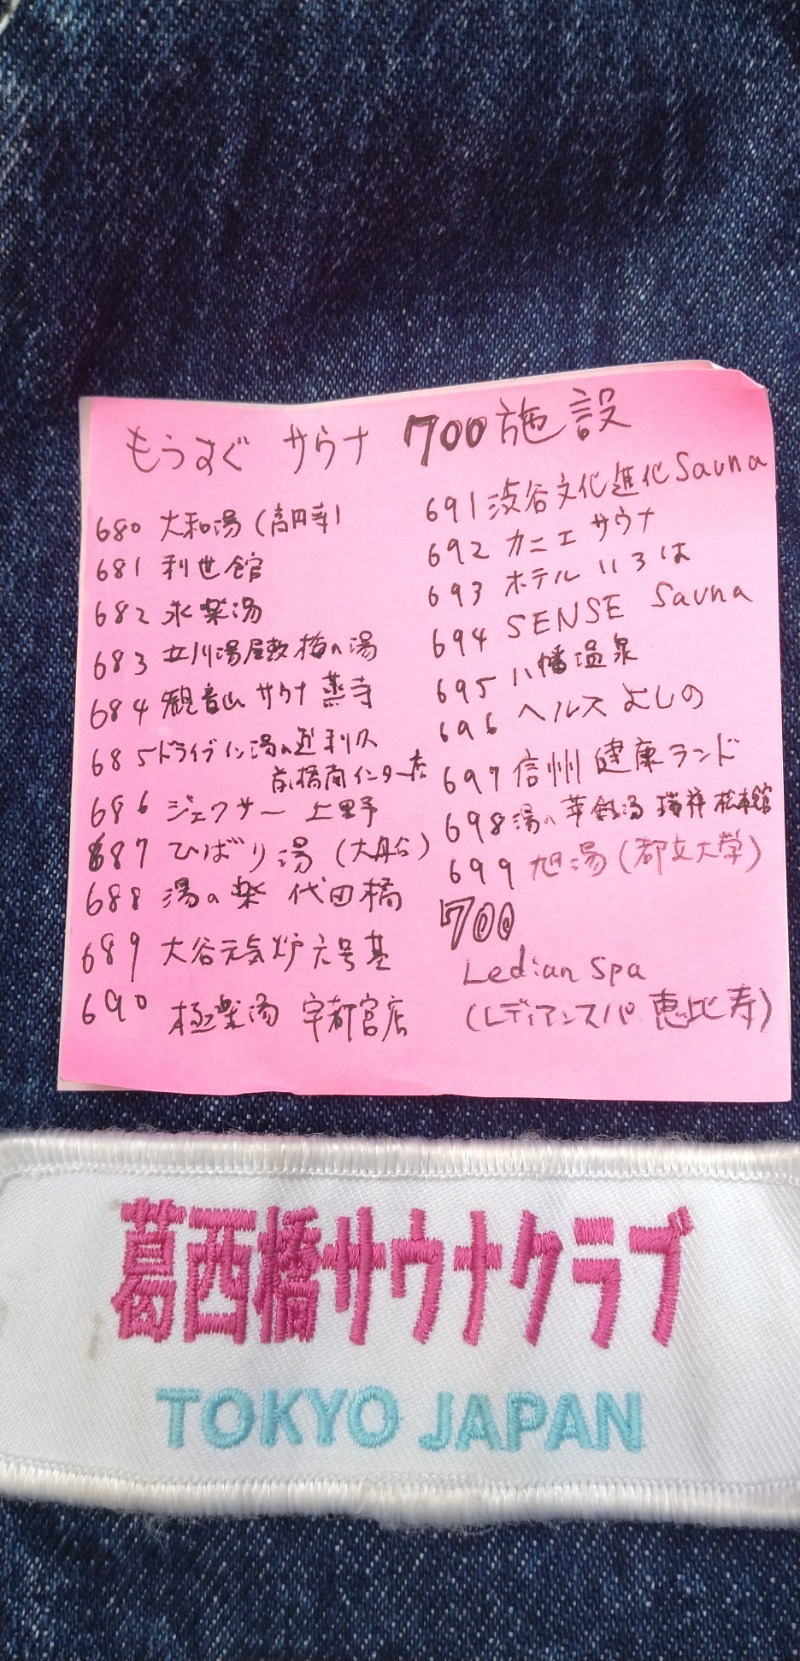 もうすぐ サウナ 700施設
680 大和湯(高円寺)
681 利世館
682 永楽湯
683 立川湯屋敷梅の湯
684 観音山サウナ 蒸寺
685 ドライブイン湯の道利久
前橋南インター店
686 ジェクサー 上野
687 ひばり湯 (大船)
688 湯の楽 代田橋
689 大谷元気炉六号基
690 極楽湯 宇都宮店
691 渋谷文化進化Sauna
692 カニエ サウナ
693 ホテル いろは
694 SENSE Sauna
695 八幡温泉
696 ヘルスよしの
697 信州 健康ランド
698 湯の華銭湯 瑞祥 松本館
699 旭湯(都立大学)
700
Ledian Spa
(レディアンスパ 恵比寿)
葛西橋サウナクラブ
TOKYO JAPAN